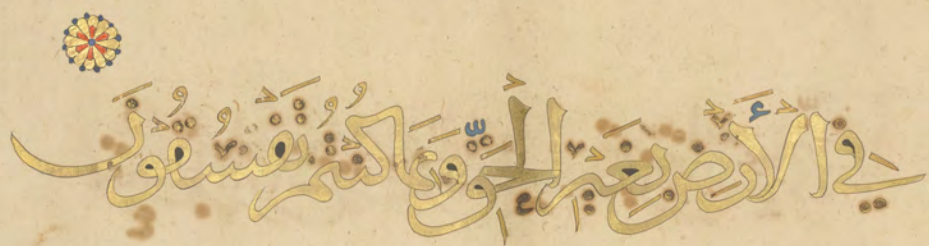 فِي ٱلْأَرْضِ بِغَيْرِ ٱلْحَقِّ وَبِمَا كُنتُمْ تَفْسُقُونَ